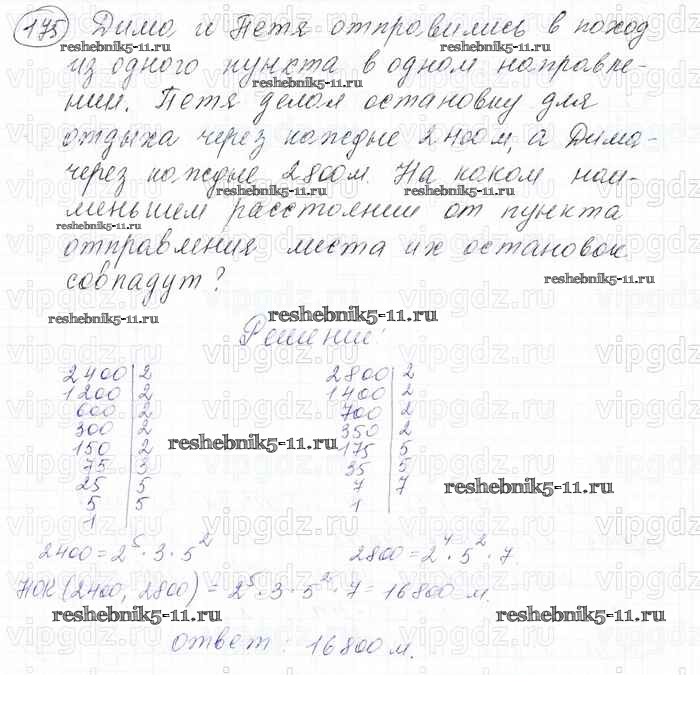 175 Дима и Петя отправились в поход
из одного пункта в одном направле-
нии. Петя делал остановку для
отдыха через каждые 2400м, а Дима-
через каждые 2800м. На каком наи-
меньшем расстоянии от пункта
отправления места их остановок
совпадут?
Решение:
2400 | 2 2800 | 2
1200 | 2 1400 | 2
600 | 2 700 | 2
300 | 2 350 | 2
150 | 2 175 | 5
75 | 3 35 | 5
25 | 5 7 | 7
5 | 5 1
1
2400 = 2⁵ · 3 · 5² 2800 = 2⁴ · 5² · 7
НОК (2400, 2800) = 2⁵ · 3 · 5² · 7 = 16800 м.
ответ: 16800 м.
reshebnik5-11.ru
vipgdz.ru